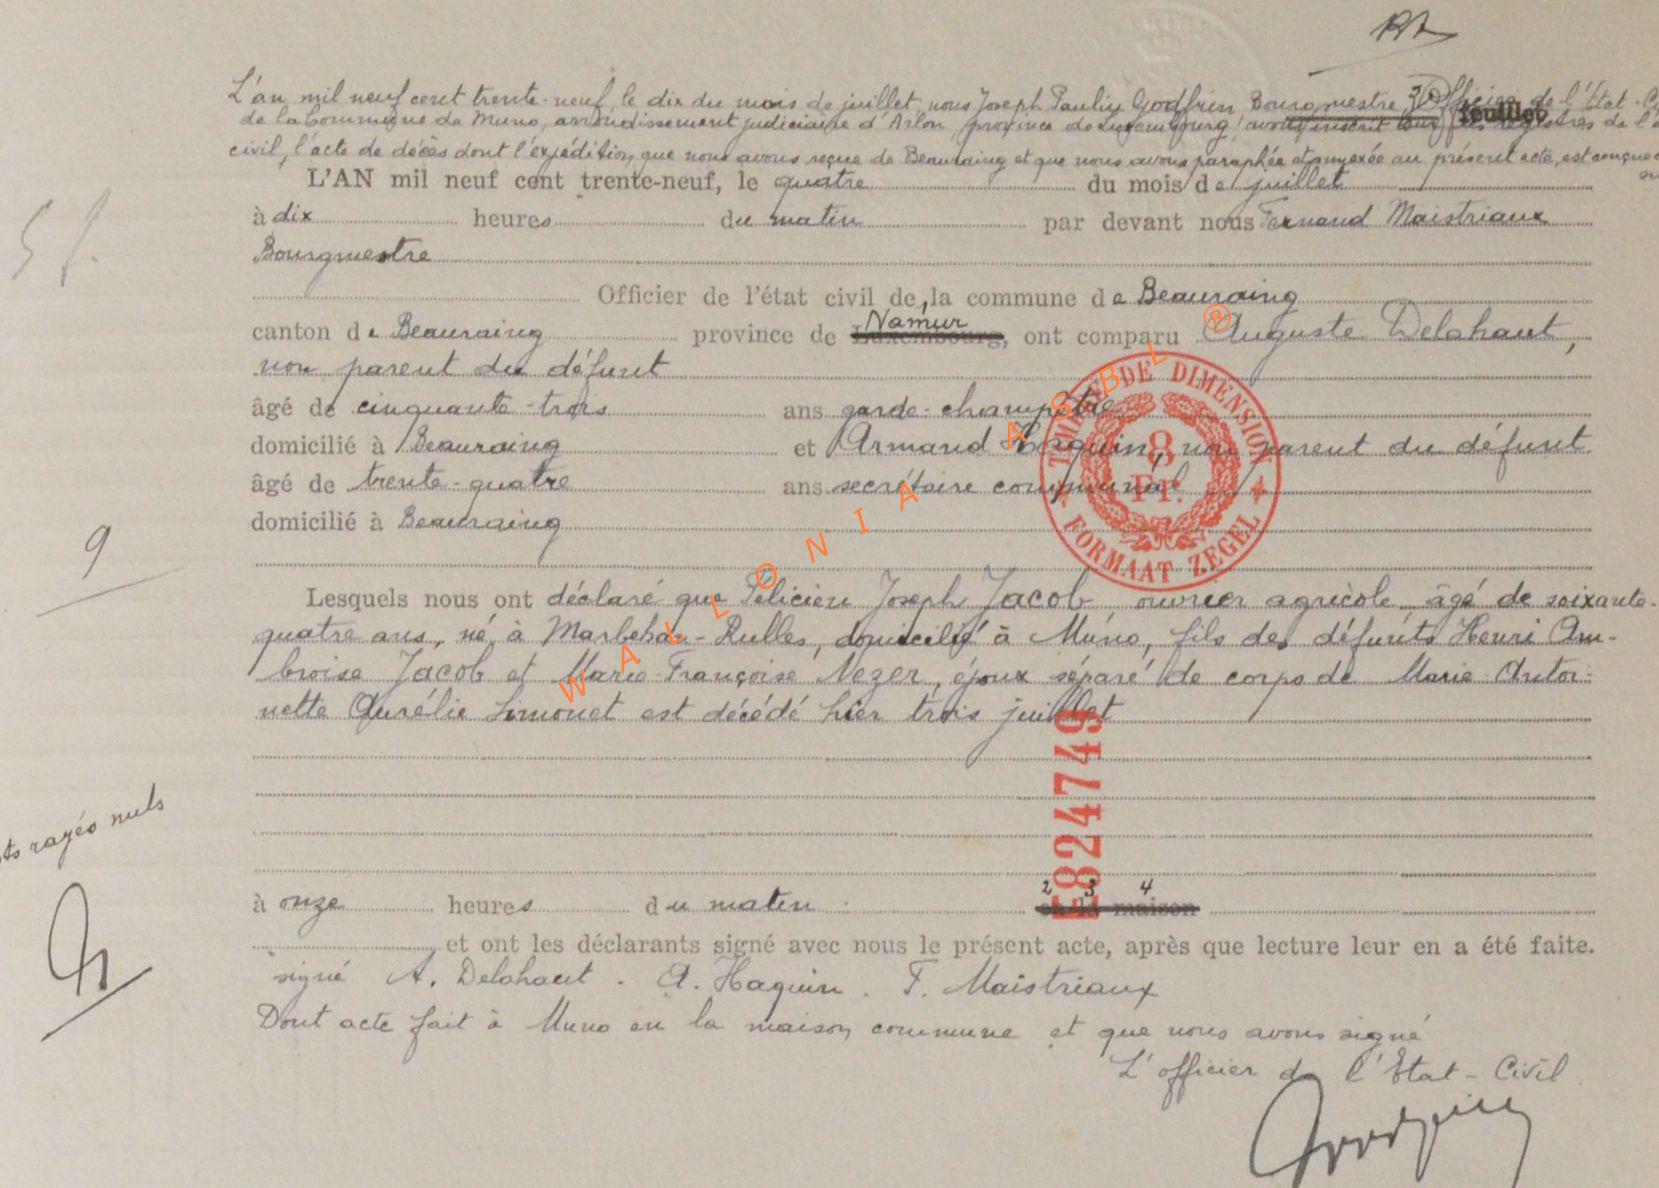 L'an mil neuf cent trente-neuf, le dix du mois de juillet, nous Joseph Paulin Godfrin Bourgmestre, Officier de l'État-C
feuillet
de la Commune de Muno, arrondissement judiciaire d'Arlon, province de Luxembourg, avons inscrit registres de l'é
civil, l'acte de décès dont l'expédition que nous avons reçue de Beauraing et que nous avons paraphée et annexée au présent acte, est conçue
L'AN mil neuf cent trente-neuf, le quatre du mois de juillet
à dix heures du matin par devant nous Fernand Maistriaux
Bourgmestre
Officier de l'état civil de la commune de Beauraing
Namur
canton de Beauraing province de Luxembourg, ont comparu Auguste Delahaut,
non parent du défunt
âgé de cinquante-trois ans garde-champêtre
domicilié à Beauraing et Armand Haquin, non parent du défunt
âgé de trente-quatre ans secrétaire communal
domicilié à Beauraing
TIMBRE DE DIMENSION
8
Fr.
FORMAAT ZEGEL
9
Lesquels nous ont déclaré que Félicien Joseph Jacob, ouvrier agricole, âgé de soixante-
quatre ans, né à Marbehan-Rulles, domicilié à Muno, fils des défunts Henri Am-
broise Jacob et Marie Françoise Nezer, époux séparé de corps de Marie Antoi-
nette Aurélie Simonet est décédé hier trois juillet
E824749
rayés nuls
2 3 4
à onze heures du matin en la maison
et ont les déclarants signé avec nous le présent acte, après que lecture leur en a été faite.
signé A. Delahaut. A. Haquin. F. Maistriaux
Dont acte fait à Muno en la maison commune et que nous avons signé
L'officier de l'Etat-Civil
WALLONIA ASBL ®